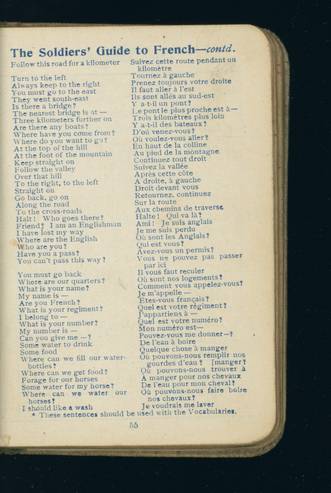 The Soldiers' Guide to French—contd.
Follow this road for a kilometer
Turn to the left
Always keep to the right
You must go to the east
They went south-east
Is there a bridge?
The nearest bridge is at —
Three kilometers further on
Are there any boats?
Where have you come from?
Where do you want to go?
At the top of the hill
At the foot of the mountain
Keep straight on
Follow the valley
Over that hill
To the right, to the left
Straight on
Go back, go on
Along the road
To the cross-roads
Halt! Who goes there?
Friend! I am an Englishman
I have lost my way
Where are the English
Who are you?
Have you a pass?
You can't pass this way?
You must go back
Where are our quarters?
What is your name?
My name is —
Are you French?
What is your regiment?
I belong to —
What is your number?
My number is —
Can you give me —?
Some water to drink
Some food
Where can we fill our water-
bottles?
Where can we get food?
Forage for our horses
Some water for my horse?
Where can we water our
horses?
I should like a wash
Suivez cette route pendant un
kilomètre
Tournez à gauche
Prenez toujours votre droite
Il faut aller à l'est
Ils sont allés au sud-est
Y a-t-il un pont?
Le pont le plus proche est à —
Trois kilomètres plus loin
Y a-t-il des bateaux?
D'où venez-vous?
Où voulez-vous aller?
En haut de la colline
Au pied de la montagne
Continuez tout droit
Suivez la vallée
Après cette côte
A droite, à gauche
Droit devant vous
Retournez, continuez
Sur la route
Aux chemins de traverse
Halte! Qui va là?
Ami! Je suis anglais
Je me suis perdu
Où sont les Anglais?
Qui est vous?
Avez-vous un permis?
Vous ne pouvez pas passer
par ici
Il vous faut reculer
Où sont nos logements?
Comment vous appelez-vous?
Je m'appelle —
Etes-vous français?
Quel est votre régiment?
J'appartiens à —
Quel est votre numéro?
Mon numéro est —
Pouvez-vous me donner—?
De l'eau à boire
Quelque chose à manger
Où pouvons-nous remplir nos
gourdes d'eau? [manger?
Où pouvons-nous trouver à
A manger pour nos chevaux
De l'eau pour mon cheval?
Où pouvons-nous faire boire
nos chevaux?
Je voudrais me laver
* These sentences should be used with the Vocabularies.
55